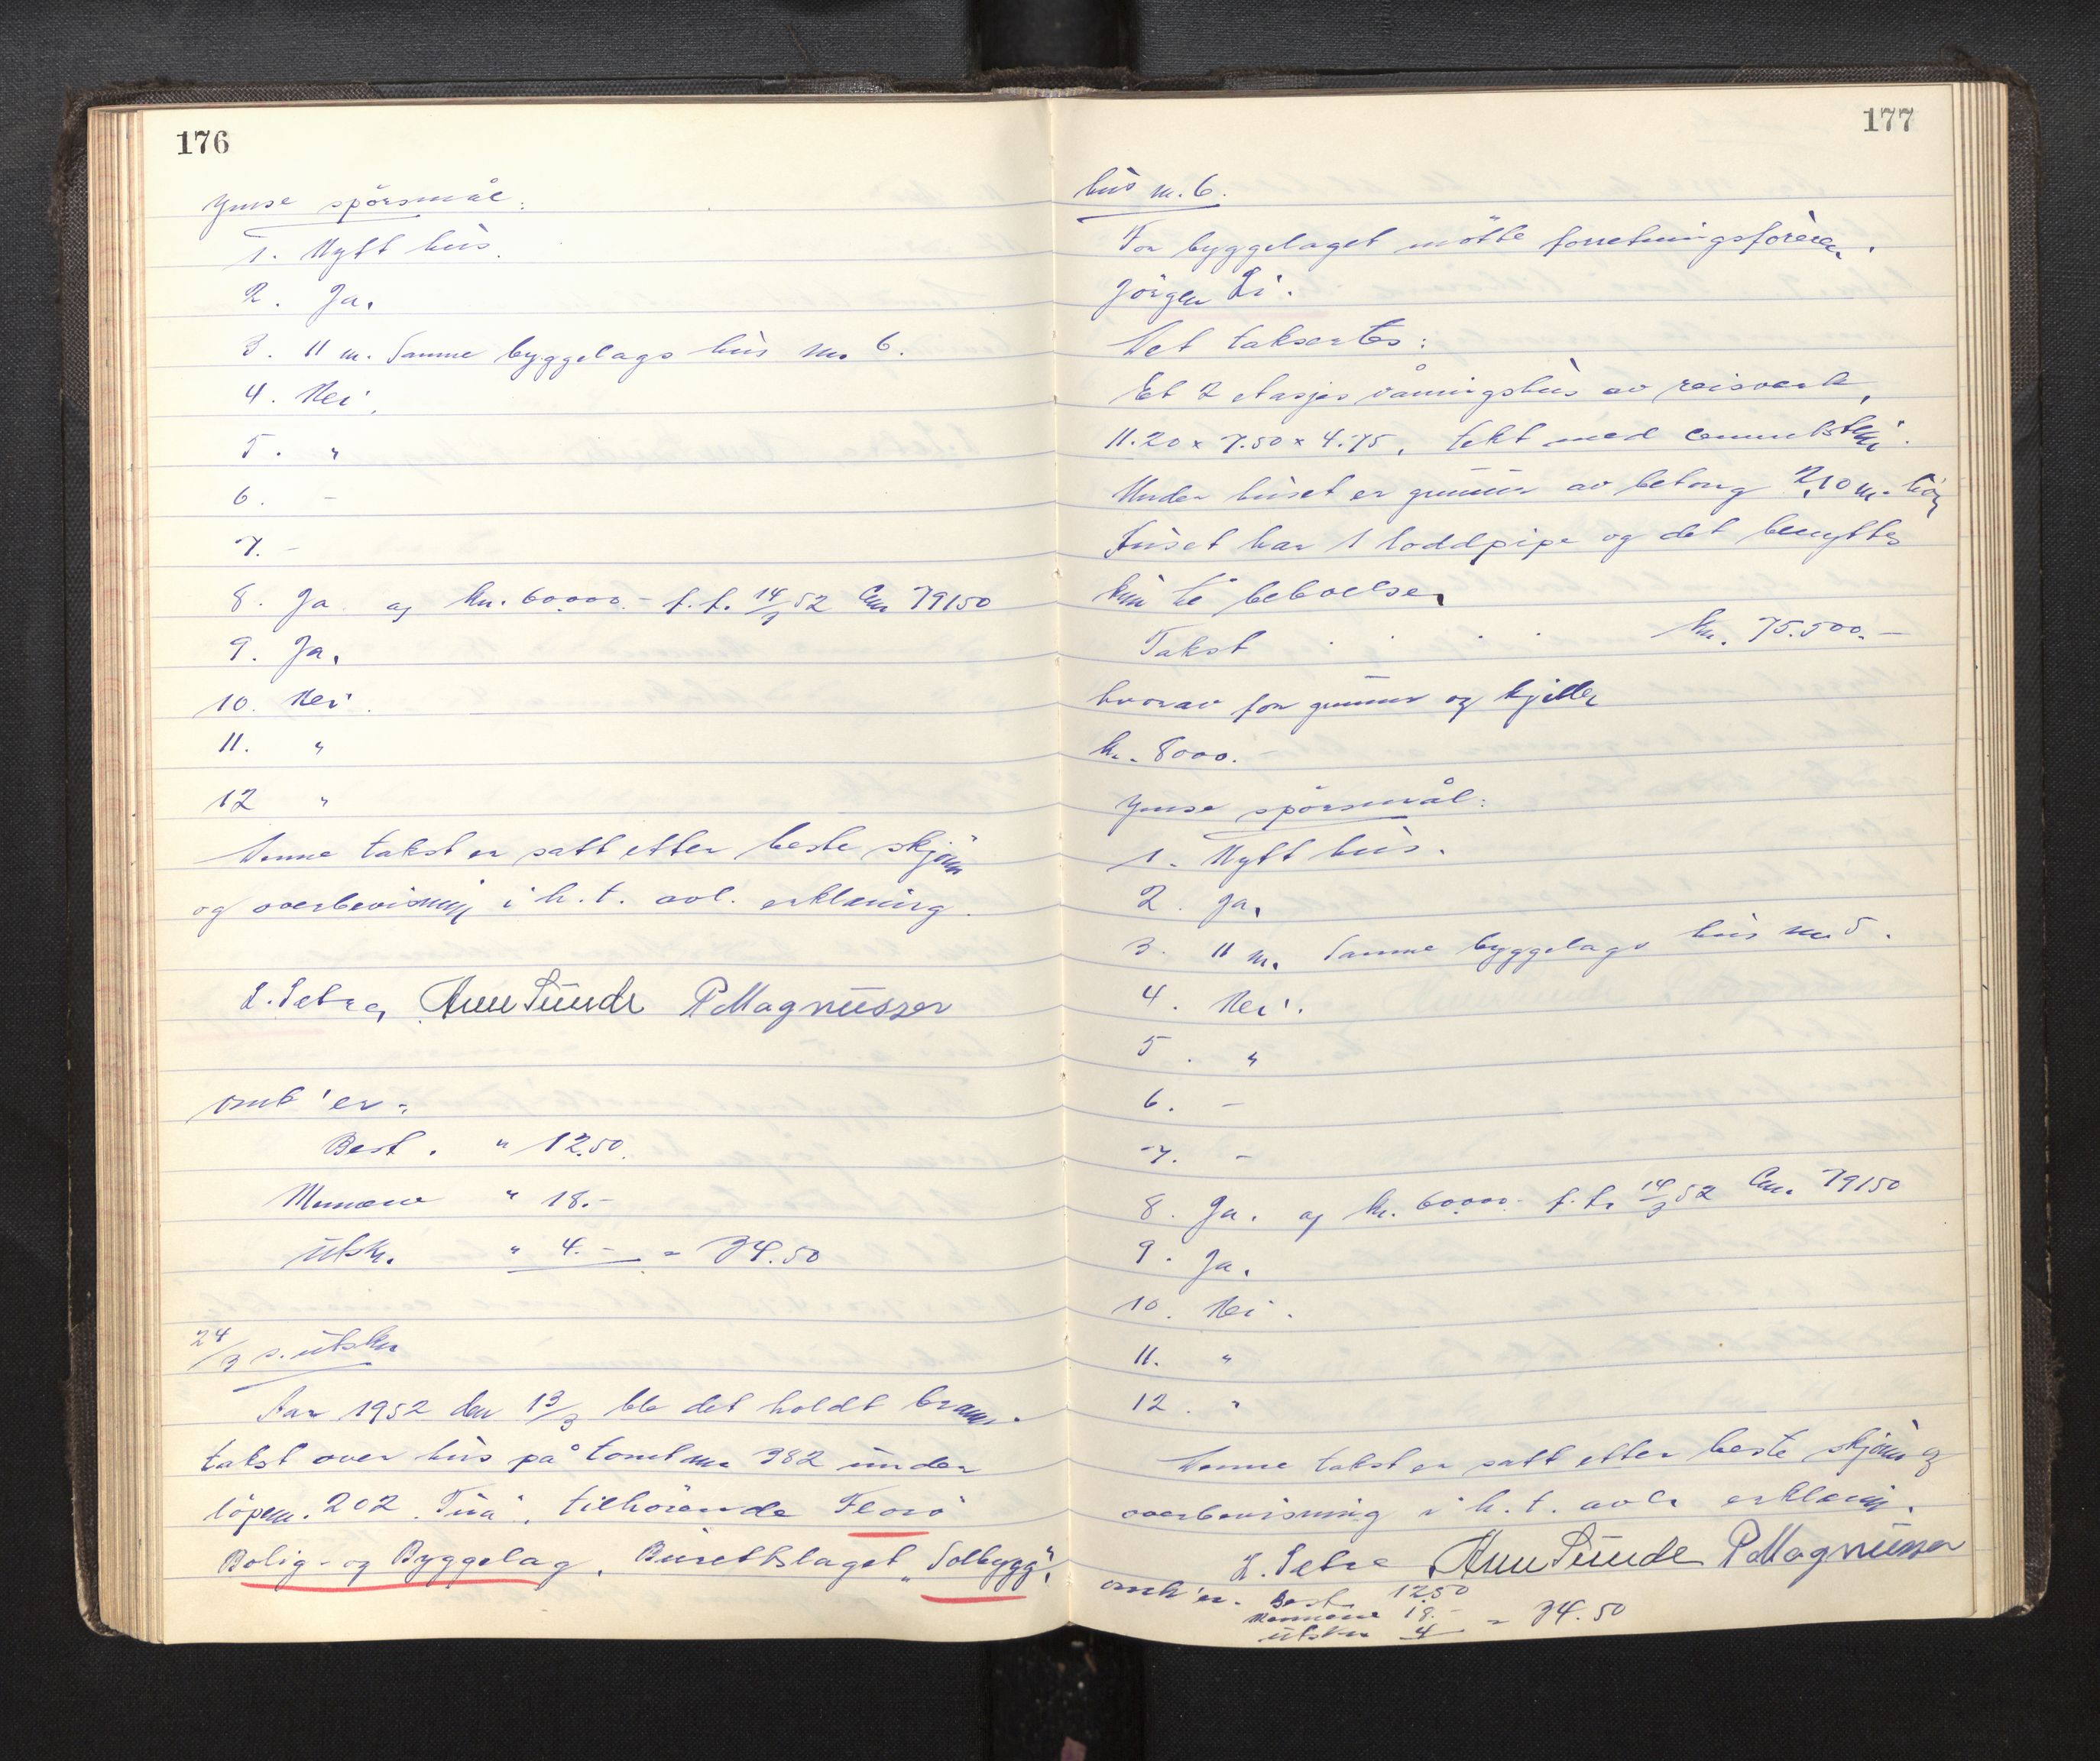 176
Ymse spörsmål:
1. Nytt hus.
2. Ja.
3. 11 m. Samme byggelags hus nr. 6.
4. Nei.
5. "
6. -
7. -
8. Ja og kr. 60000.- f.f. 14/3 52 79150
9. Ja.
10. Nei.
11. "
12 "
Denne takst er satt etter beste skjönn
og overbevisning i h.t. avl. erklæring.
L. Sætre, Arne Sunde P Magnussen
omk'er.
Best. " 12.50.
Mennene " 18.-
Utskr. " 4.- = 34.50
24/3 s. utskr
Aar 1952 den 13/3 ble det holdt brann-
takst over hus på tomt nr 382 under
löpenr. 202 "Tua", tilhörende Florö
Bolig- og Byggelag, Burettslaget "Solbygg",
177
hus nr. 6.
For byggelaget mötte forretningsförer
Jörgen Li.
Det taksertes:
Et 2 etasjes våningshus av reisverk,
11.20 x 7.50 x 4.75, tekt med cementstein.
Under huset er grunnmur av betong 2,10 m. höy
Huset har 1 loddpipe og det benyttes
kun til beboelse.
Takst . . . . kr. 75.500.-
hvorav for grunnmur og kjeller
kr. 8000.-
Ymse spörsmål:
1. Nytt hus.
2. Ja.
3. 11 m. Samme byggelags hus nr. 5.
4. Nei.
5. "
6. -
7. -
8. Ja. og kr. 60000.- f.f. 14/3 52 79150
9. Ja.
10. Nei.
11. "
12. "
Denne takst er satt etter beste skjönn og
overbevisning i h.t. avl. erklæring.
L. Sætre Arne Sunde P Magnussen
omk'er. Best. 12.50
Mennene 18.- = 34.50
utskr 4